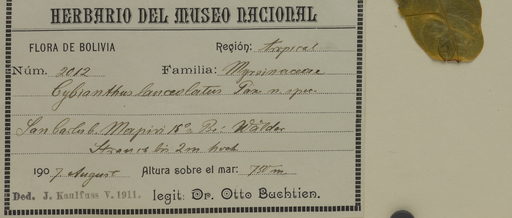 HERBARIO DEL MUSEO NACIONAL
FLORA DE BOLIVIA Región: tropical
Núm. 2012 Familia: Myrsinaceae
Cybianthus lanceolatus Pax n. spec.
San Carlos b. Mapiri 15° Br: Wälder
Strauch bis 2m hoch
1907, August Altura sobre el mar: 750 m
Ded. J. Kaulfuss V. 1911. legit: Dr. Otto Buchtien.